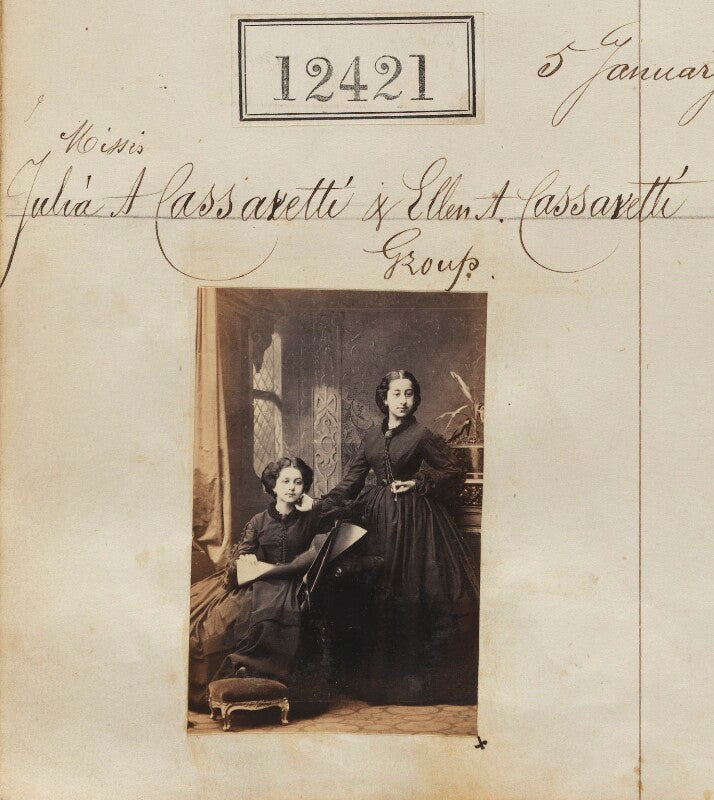 12421
5 January
Misses
Julia A Cassavetti & Ellen A. Cassavetti
Group.